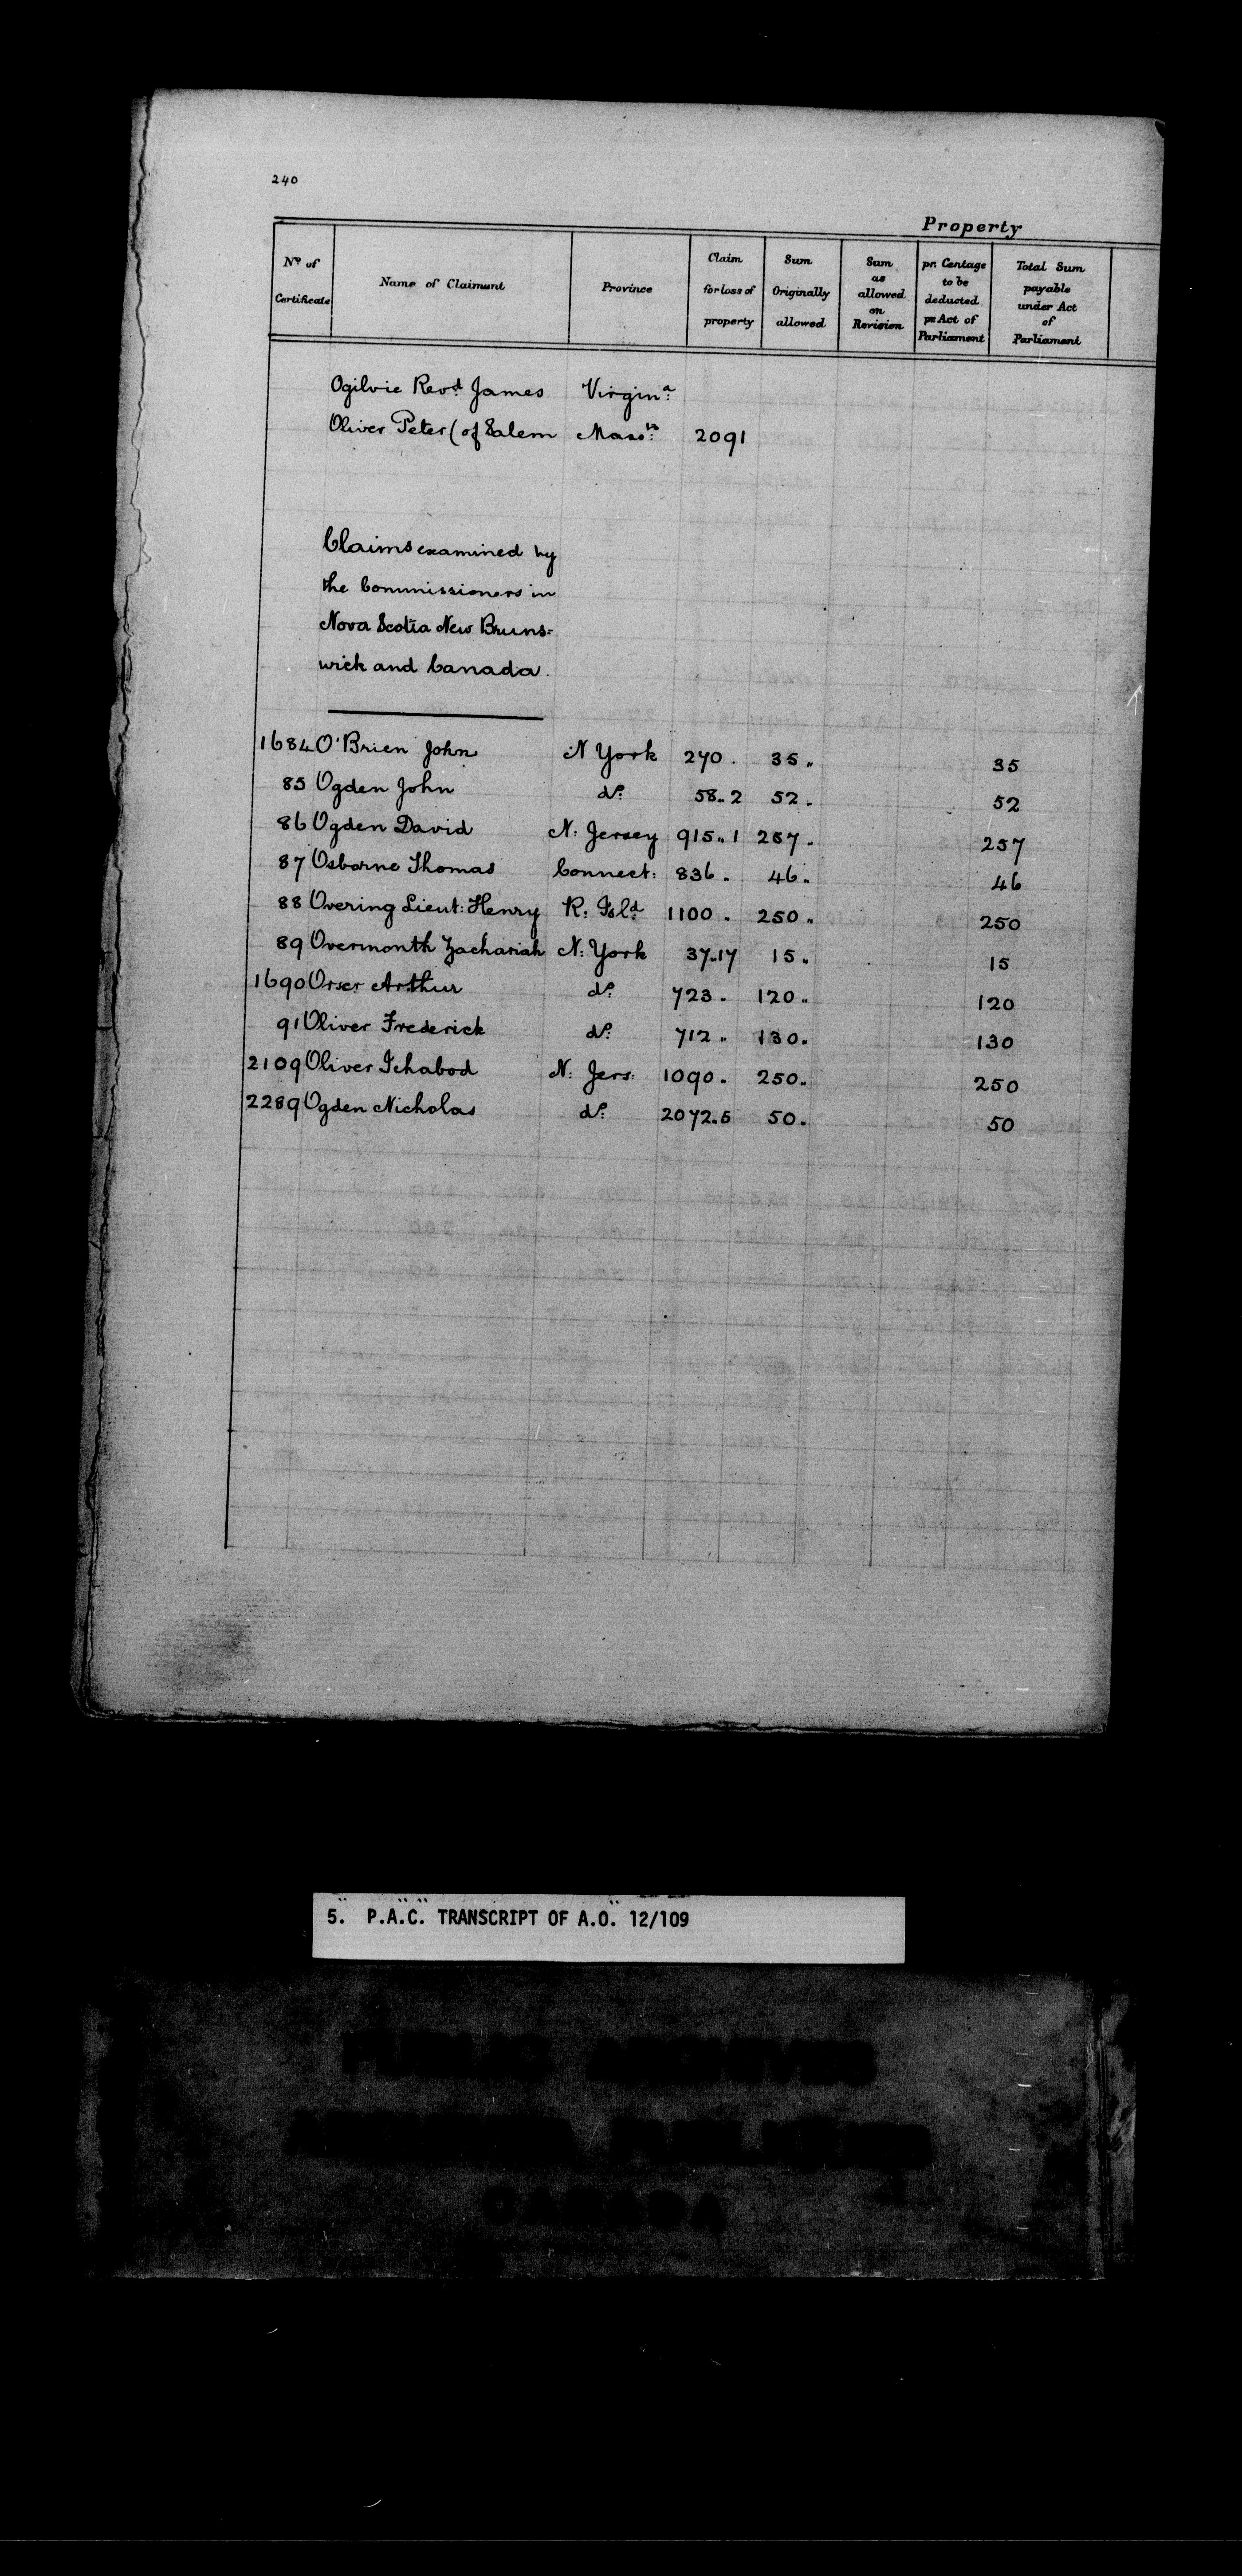 240
Property
No. of Certificate | Name of Claimant | Province | Claim for loss of property | Sum Originally allowed | Sum as allowed on Revision | pr. Centage to be deducted pr Act of Parliament | Total Sum payable under Act of Parliament
Ogilvie Revd. James Virgina.
Oliver Peter (of Salem Massts. 2091
Claims examined by
the Commissioners in
Nova Scotia New Bruns-
wick and Canada.
1684 O'Brien John N York 270 . 35 " 35
85 Ogden John do. 58..2 52 . 52
86 Ogden David N: Jersey 915..1 257 . 257
87 Osborne Thomas Connect: 836 . 46 . 46
88 Overing Lieut: Henry R: Isld. 1100 . 250 " 250
89 Overmonth Zachariah N: York 37..17 15 . 15
1690 Orser Arthur do. 723 . 120 . 120
91 Oliver Frederick do. 712 " 130 . 130
2109 Oliver Ichabod N: Jers: 1090 . 250 . 250
2289 Ogden Nicholas do. 2072.5 50 . 50
5. P.A.C. TRANSCRIPT OF A.O. 12/109